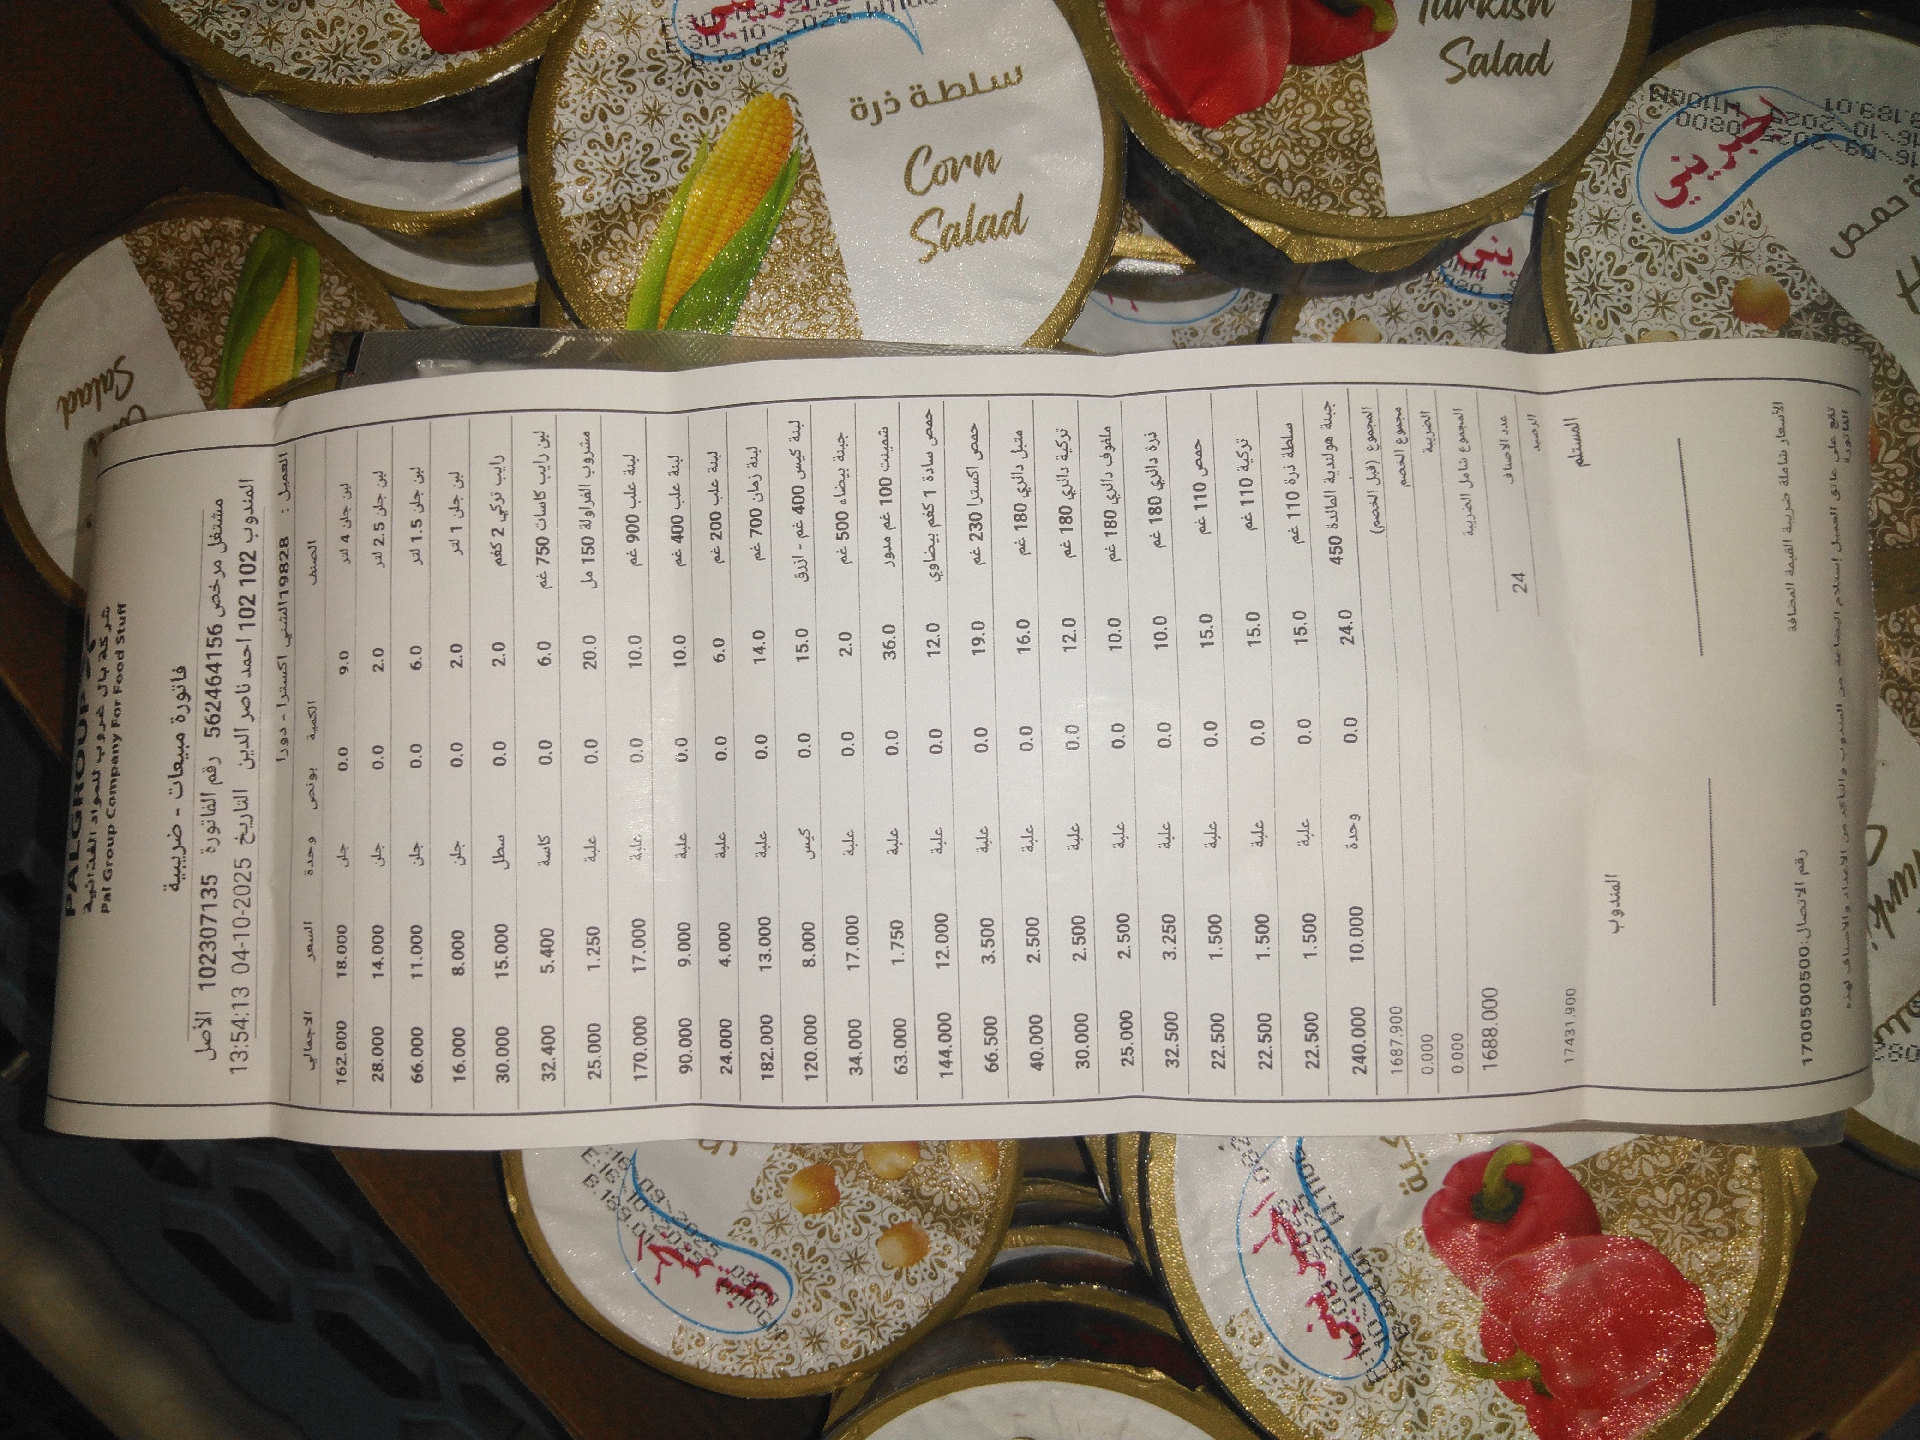 PALGROUP
شركة بال غروب للمواد الغذائية
Pal Group Company For Food Stuff
فاتورة مبيعات - ضريبية
مشتغل مرخص 562464156 رقم الفاتورة 102307135 الأصل
المندوب 102 102 احمد ناصر الدين التاريخ 04-10-2025 13:54:13
العميل : 19828 الشني اكسترا - دورا
الصنف الكمية بونص وحدة السعر الاجمالي
لبن جلن 4 لتر 9.0 0.0 جلن 18.000 162.000
لبن جلن 2.5 لتر 2.0 0.0 جلن 14.000 28.000
لبن جلن 1.5 لتر 6.0 0.0 جلن 11.000 66.000
لبن جلن 1 لتر 2.0 0.0 جلن 8.000 16.000
رايب تركي 2 كغم 2.0 0.0 سطل 15.000 30.000
لبن رايب كاسات 750 غم 6.0 0.0 كاسة 5.400 32.400
مشروب الفراولة 150 مل 20.0 0.0 علبة 1.250 25.000
لبنة علب 900 غم 10.0 0.0 علبة 17.000 170.000
لبنة علب 400 غم 10.0 0.0 علبة 9.000 90.000
لبنة علب 200 غم 6.0 0.0 علبة 4.000 24.000
لبنة زمان 700 غم 14.0 0.0 علبة 13.000 182.000
لبنة كيس 400 غم - ازرق 15.0 0.0 كيس 8.000 120.000
جبنة بيضاء 500 غم 2.0 0.0 علبة 17.000 34.000
شمينت 100 غم مدور 36.0 0.0 علبة 1.750 63.000
حمص سادة 1 كغم بيضاوي 12.0 0.0 علبة 12.000 144.000
حمص اكسترا 230 غم 19.0 0.0 علبة 3.500 66.500
متبل دائري 180 غم 16.0 0.0 علبة 2.500 40.000
تركية دائري 180 غم 12.0 0.0 علبة 2.500 30.000
ملفوف دائري 180 غم 10.0 0.0 علبة 2.500 25.000
ذرة دائري 180 غم 10.0 0.0 علبة 3.250 32.500
حمص 110 غم 15.0 0.0 علبة 1.500 22.500
تركية 110 غم 15.0 0.0 علبة 1.500 22.500
سلطة ذرة 110 غم 15.0 0.0 علبة 1.500 22.500
جبنة هولندية المائدة 450 24.0 0.0 وحدة 10.000 240.000
المجموع (قبل الخصم) 1687.900
مجموع الخصم 0.000
الضريبة 0.000
المجموع شامل الضريبة 1688.000
عدد الاصناف 24
الرصيد 17431.900
المستلم المندوب
الأسعار شاملة ضريبة القيمة المضافة
رقم الاتصال:1700500500
تقع على عاتق العميل إستلام البضاعة من المندوب والتأكد من الاعداد والاصناف لهذه
الفاتورة
سلطة ذرة
Corn
Salad
Turkish
Salad
الجبريني
Salad